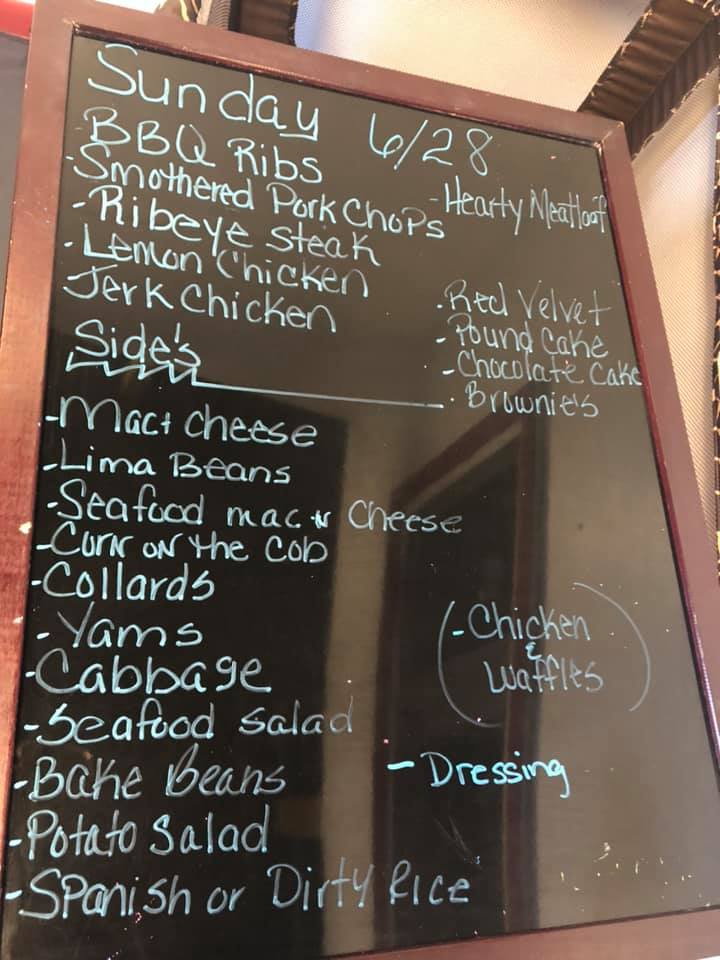 Sunday 6/28
BBQ Ribs
-Smothered Pork Chops
-Hearty Meatloaf
-Ribeye Steak
-Lemon Chicken
Jerk Chicken
-Red Velvet
-Pound Cake
-Chocolate Cake
-Brownie's
Side's
-Mac + Cheese
-Lima Beans
-Seafood mac N Cheese
-Corn on the Cob
-Collards
-Yams
-Cabbage
-Seafood Salad
-Bake Beans
-Potato Salad
-Spanish or Dirty Rice
(-Chicken
&
Waffles)
-Dressing